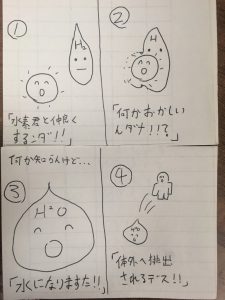 ①
H₂
「水素君と仲良く
するンダ!!」
②
H
「何かおかしい
んダナ!!?」
何か知らんけど…
③
H²O
「水になりますた!!」
④
H²O
「体外へ排出
されるデス!!」